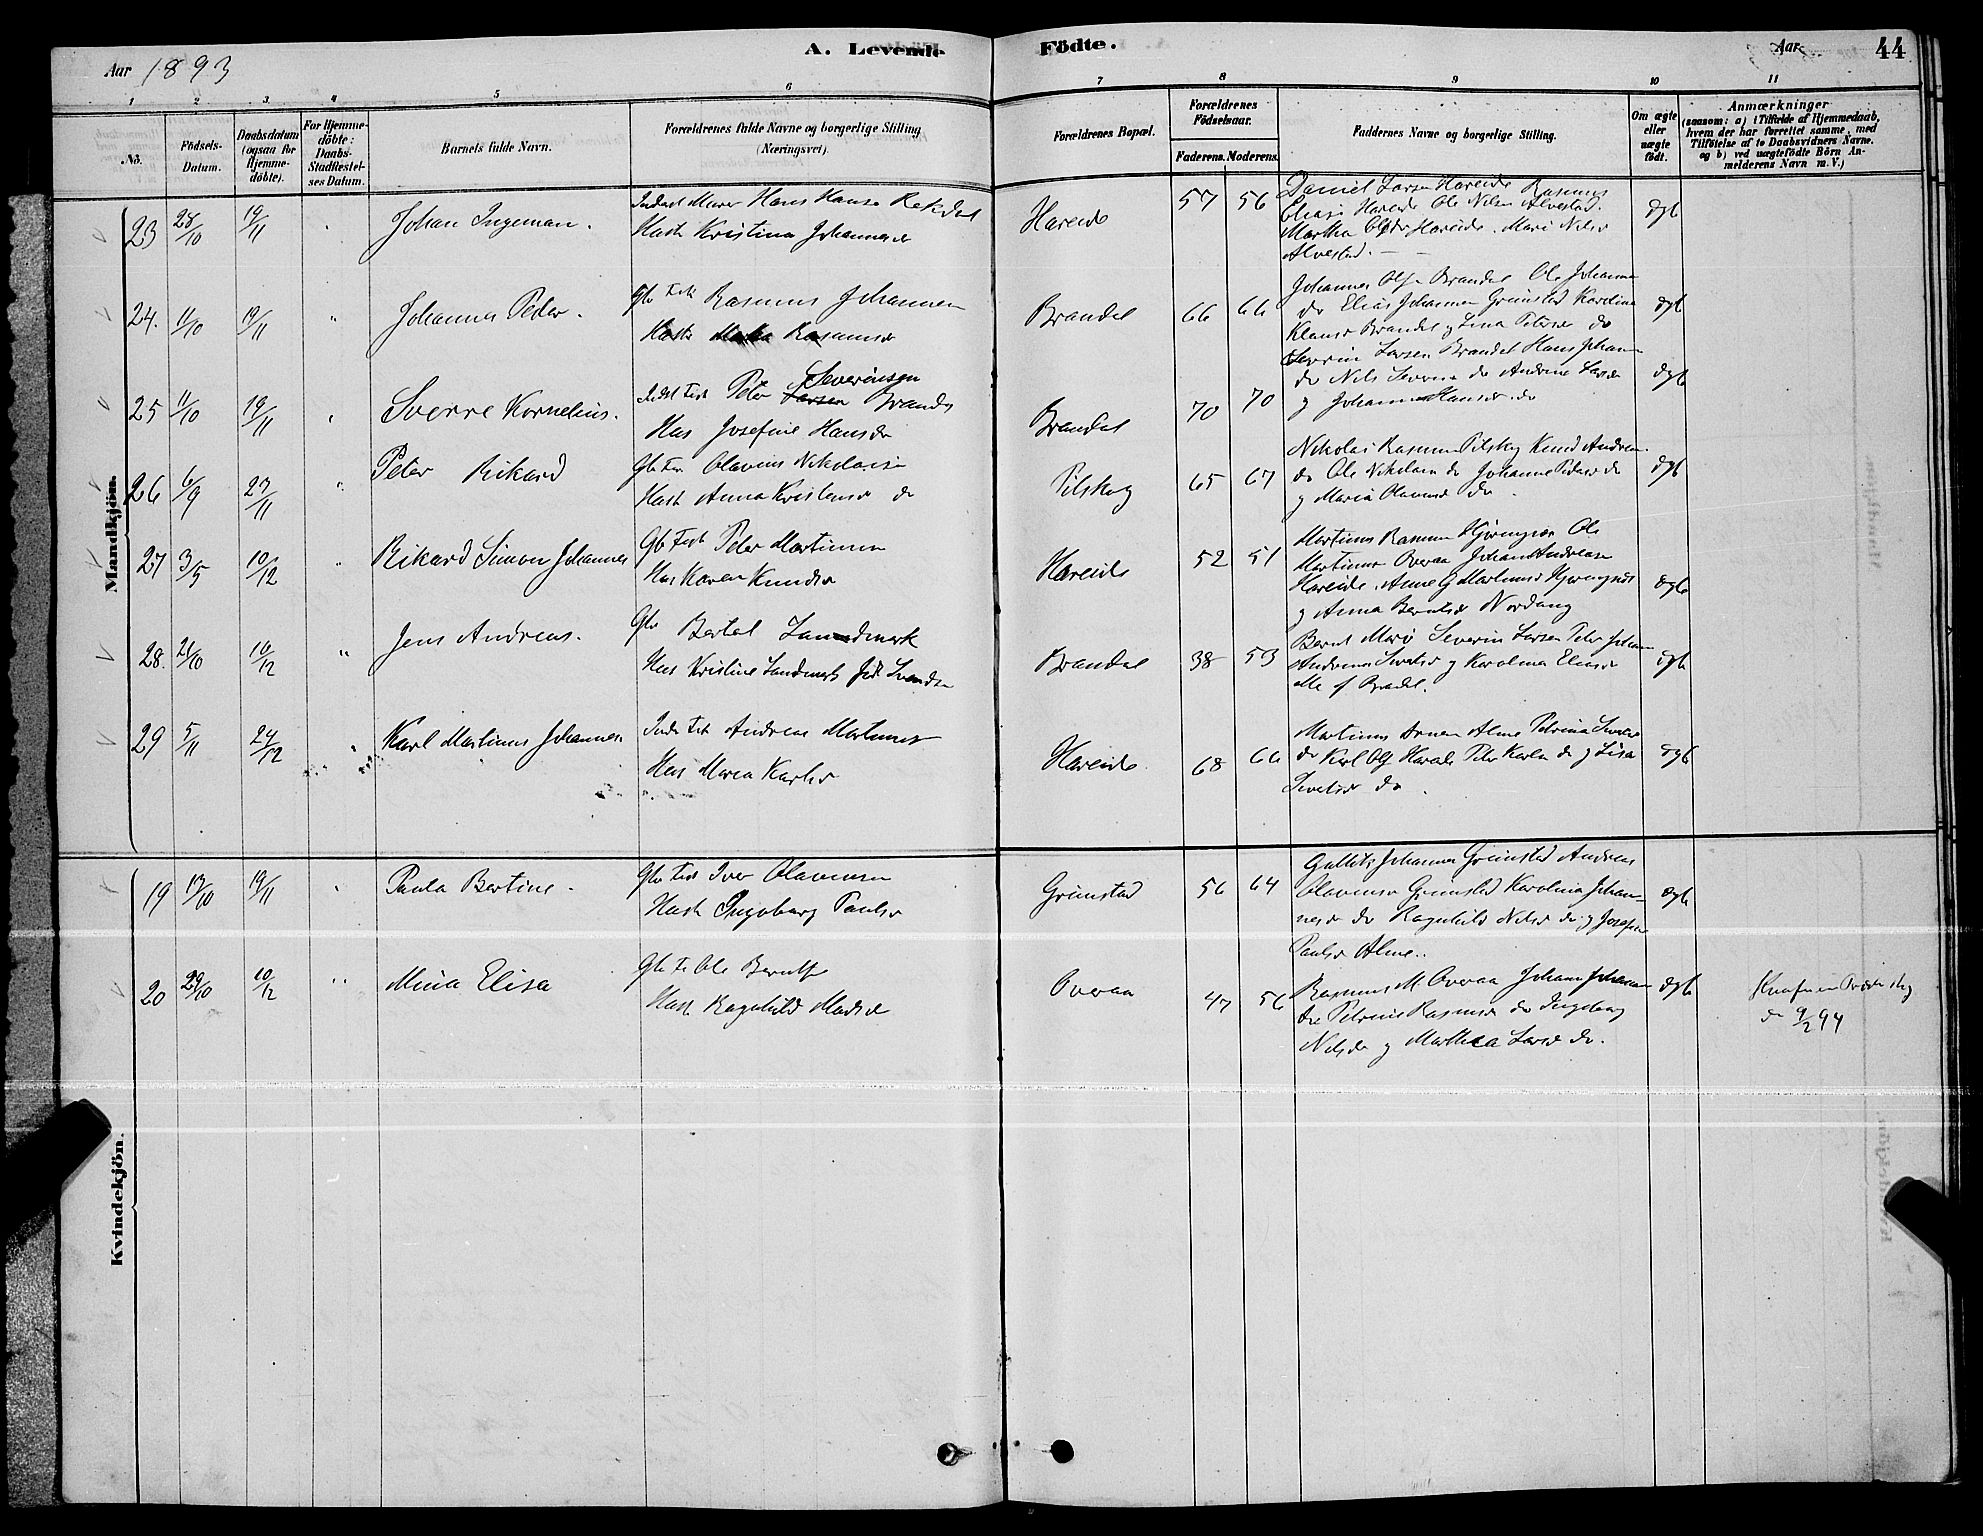 A. Levende Födte.
Aar 1893
Aar
44
1 2 3 4 5 6 7 8 9 10 11
No.
Födsels-Datum.
Daabsdatum (ogsaa for Hjemme-döbte).
For Hjemme-döbte: Daabs-Stadfæstel-ses Datum.
Barnets fulde Navn.
Forældrenes fulde Navne og borgerlige Stilling (Næringsvei).
Forældrenes Bopæl.
Forældrenes Födselsaar.
Faderens. Moderens.
Faddernes Navne og borgerlige Stilling.
Om ægte eller uægte födt.
Anmærkninger
(saasom: a) i Tilfælde af Hjemmedaab,
hvem der har forrettet samme, med
Tilföielse af to Daabsvidners Navne.
og b) ved uægtefödte Börn An-
melderens Navn m. V.)
Mandkjön.
23 28/10 19/11 Johan Ingeman.
Hans Hansen
Kristina Johannesd
Hareide 57 56
Daniel Larsen Hareide Rasmus
Eliass Hareide Ole Nilsen Alvestad.
Martha Hareide. Mari Nilsd
Alvestad. —
ægte
24. 11/10 19/11 " Johannes Peder.
Gbr Fisk Rasmus Johannesen
Hust Rasmusd
Brandal 66 66
Johannes Olsen Brandal Ole Johannes
do Elias Johannesen Grimstad Karolina
Klausd Brandal og Lina Petersd do
ægte
25 11/10 19/11 Sverre Kornelius.
Inderst Fisk Peter Larsen Severinsen Brandal
Hus Josefine Hansdr
Brandal 70 70
Severin Larsen Brandal Hans Johan
do Nils Severins do Andrine Larsdr
og Johanne Hansdr. do
ægte
26 6/9 27/11 " Peter Rikard
Gbr Fisk Olavius Nikolaisen
Hust Anna Kristensdr do
Pilskog 65 67
Nikolai Rasmusen Pilskog Knud Andreas
do Ole Nikolaisen do Johanne Pedersd do
og Maria Olavusd do.
ægte
27 3/5 10/12 " Rikard Simon Johannes
Gbr Fisk Peter Martinusen
Hus Karen Knudsdr
Hareide 52 51
Martinus Rasmusen Hjørungnes Ole
Martinusen Overaa Johan Andreasen
Hareide. Anne G Martinusd Hjørungnes
og Anna Berntsdr Nordang
ægte
28. 21/10 10/12 " Jens Andreas.
Gbr Bertel Landmark
Hus Kristine Landmark
Brandal 38 53
Bernt Severin Larsen Peter Johan
Andrine Sivertsd og Karolina Eliasdr
alle af Brandal.
ægte
29 5/11 24/12 Karl Martinus Johannes
Inderst Fisk Andreas Martinusen
Hus Maren Karlsdr
Hareide 68 66
Martinus Arnesen Alme Petrina Sivertsd
do Karl Ols Hareide Peter Karlsen do og Lisa
Sivertsdr do.
ægte
Kvindekjön.
19 17/10 19/11 Paula Bertine.
Gbr Fisk Iver Olavusen
Hust Ingeborg Paulsdr
Grimstad 56 64
Johannes Grimstad Andreas
Olavusen Grimstad Karolina Johan-
nesd do Ragnhild Nilsd do og Josefine
Paulsd Alme..
ægte
20 29/10 10/12 " Mina Elisa
Gbr Fi Ole Berntsen
Hust Ragnhild Madsdr
Overaa 47 56
Rasmus M Overaa Johan Johannesen
do Petrine Rasmusd do Ingeborg
Nilsdr og Marthea Larsd do.
ægte
9/2 94